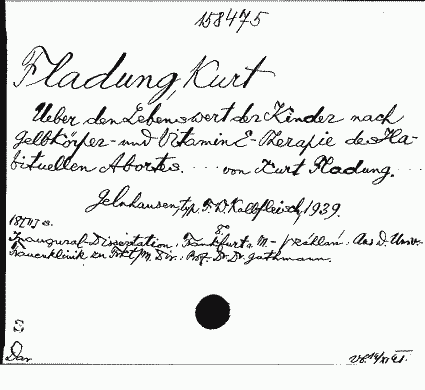 158475
Fladung, Kurt
Ueber den Lebenswert der Kinder nach
Gelbkörper- und Vitamin E-Therapie des Ha-
bituellen Abortes. von Kurt Fladung.
Gelnhausen, typ. F. W. Kalbfleisch, 1939.
18 [1] s. 8.
Inaugural-Dissertation. Frankfurt a M- Aus d. Univ.
Frauenklinik zu Frkf/M. Dir.: Prof. Dr. Dr. Guthmann.
S
Dar